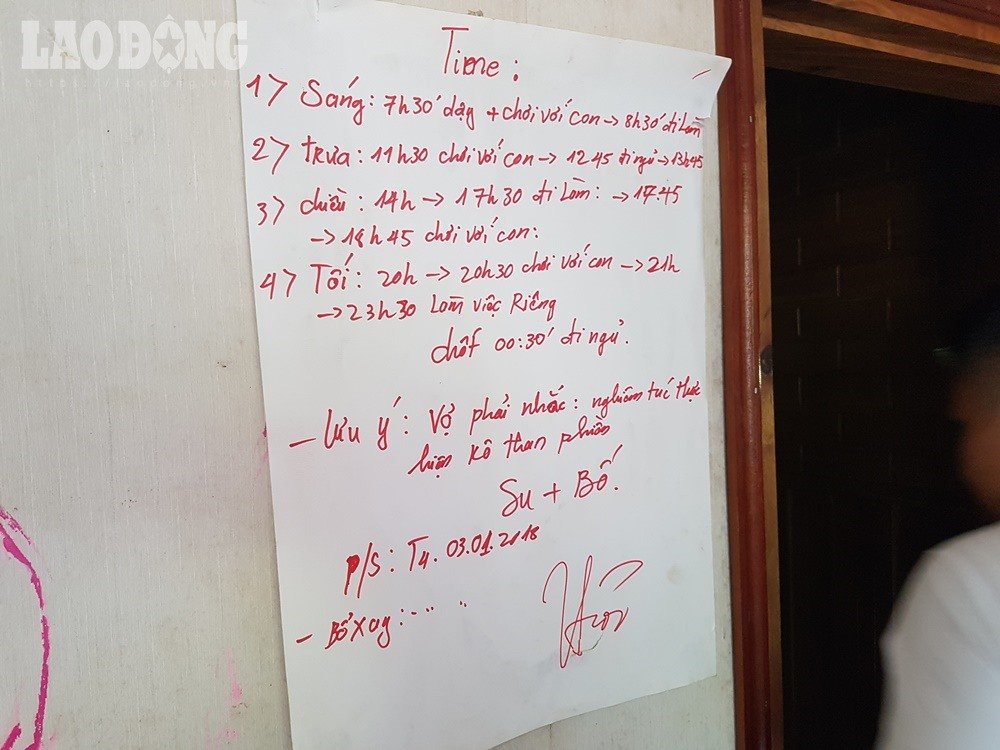 LAO ĐỘNG
Time:
1> Sáng: 7h30' dậy + chơi với con → 8h30' đi làm
2> trưa: 11h30 chơi với con → 12 45 đi ngủ → 13h45
3> chiều: 14h → 17h30 đi làm: → 17:45
→ 18h45 chơi với con:
4> Tối: 20h → 20h30 chơi với con → 21h
→ 23h30 làm việc Riêng
chốt 00:30' đi ngủ.
- Lưu ý: Vợ phải nhắc: nghiêm túc thực
hiện kô than phiền
Su + Bố.
P/S: T4. 03.01.2018
- Bổ xug: